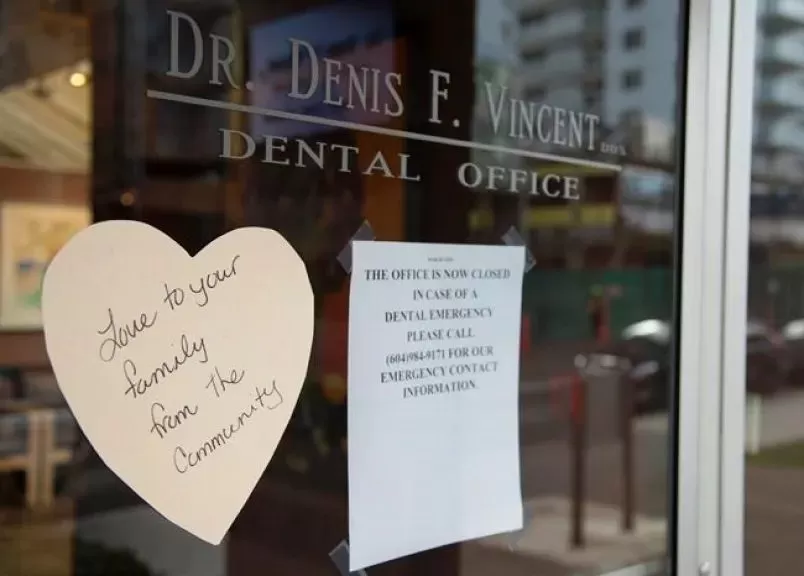 DR. DENIS F. VINCENT DDS
DENTAL OFFICE
Love to your
family
from the
Community
THE OFFICE IS NOW CLOSED
IN CASE OF A
DENTAL EMERGENCY
PLEASE CALL
(604)984-9171 FOR OUR
EMERGENCY CONTACT
INFORMATION.